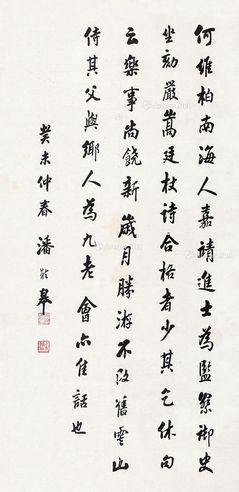 何維柏南海人嘉靖進士為監察御史
坐劾嚴嵩廷杖詩合格者少其乞休句
云樂事尚饒新歲月勝游不改舊雲山
侍其父與鄉人為九老會亦佳話也
癸未仲春潘齡皋